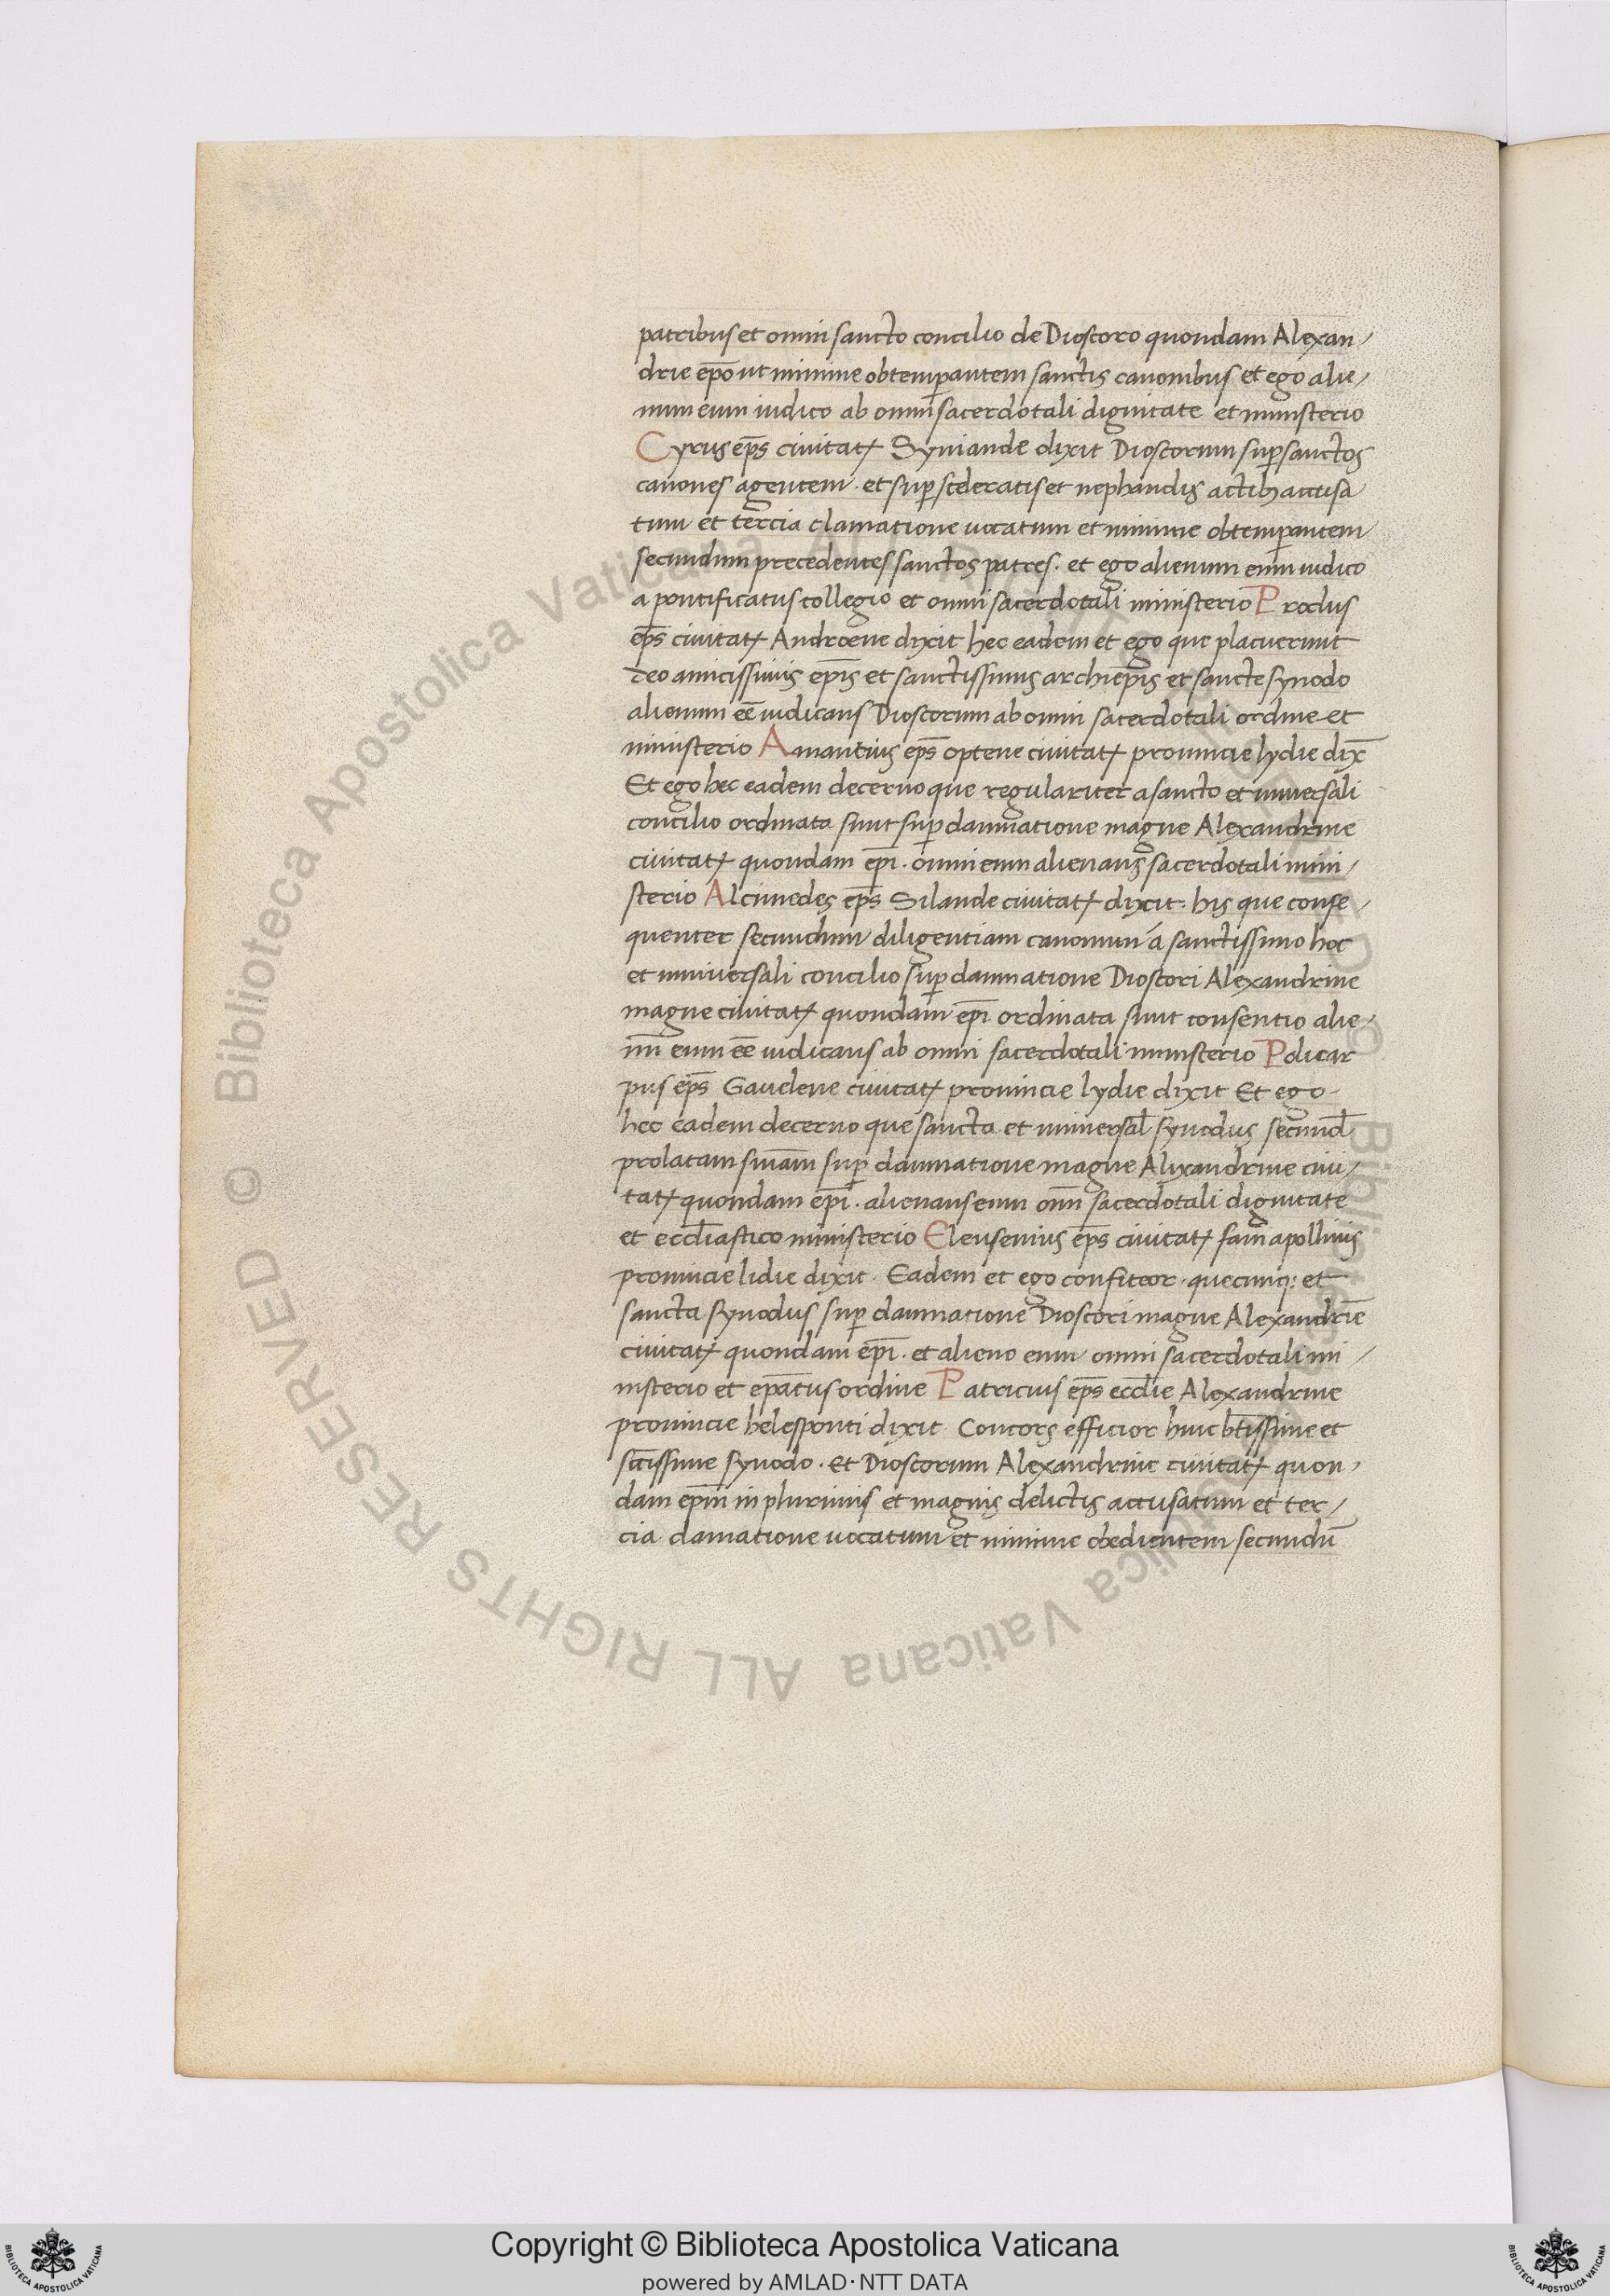 patribus et omni sancto concilio de Dioscoro quondam Alexan/
drie ep̄o ut minime obtemꝑantem sanctis canonibus et ego alie/
num eum iudico ab omni sacerdotali dignitate et ministerio
Cyrus ep̄s ciuitatꝭ Syniande dixit Dioscorum suꝑ sanctos
canones agentem · et suꝑ sceleratis et nephandis actibꝫ accusa
tum et tercia clamatione uocatum et minime obtemꝑantem
secundum precedentes sanctos patres · et ego alienum eum iudico
a pontificatus collegio et omni sacerdotali ministerio Proclus
ep̄s ciuitatꝭ Androene dixit hec eadem et ego que placuerunt
deo amicissimis ep̄is et sanctissimis archiep̄is et sancte synodo
alienum eē iudicans Dioscorum ab omni sacerdotali ordine et
ministerio Amantius ep̄s optene ciuitatꝭ prouincie lydie dix̄
Et ego hec eadem decerno que regulariter a sancto et uniuersali
concilio ordinata sunt suꝑ damnatione magne Alexandrine
ciuitatꝭ quondam ep̄i · omni eum alienans sacerdotali mini/
sterio Alcimedes ep̄s Silande ciuitatꝭ dixit · his que conse/
quenter secundum diligentiam canonum á sanctissimo hoc
et uniuersali concilio suꝑ damnatione Dioscori Alexandrine
magne ciuitatꝭ quondam ep̄i ordinata sunt consentio alie/
nū eum eē iudicans ab omni sacerdotali ministerio Policar
pus ep̄s Gauelene ciuitatꝭ prouincie lydie dixit Et ego
hec eadem decerno que sancta et uniuersal̄ synodus secund̄
prolatam sn̄iam suꝑ damnatione magne Alixandrine ciui/
tatꝭ quondam ep̄i · alienans eum om̄i sacerdotali dignitate
et eccl̄iastico ministerio Eleusenius ep̄s ciuitatꝭ fam̄ apollinis
prouincie lidie dixit · Eadem et ego confiteor · quecunq: et
sancta synodus suꝑ damnatione Dioscori magne Alexandrīe
ciuitatꝭ quondam ep̄i · et alieno eum omni sacerdotali mi/
nisterio et ep̄atus ordine Patricius ep̄s eccl̄ie Alexandrine
prouincie helesponti dixit Concors efficior huic bt̄issime et
sc̄tissime synodo · et Dioscorum Alexandrine ciuitatꝭ quon/
dam ep̄m in plurimis et magnis delictis accusatum et ter/
cia clamatione uocatum et minime obedientem secundū
Copyright © Biblioteca Apostolica Vaticana
powered by AMLAD·NTT DATA
© Biblioteca Apostolica Vaticana ALL RIGHTS RESERVED © Biblioteca Apostolica Vaticana ALL RIGHTS RESERVED
BIBLIOTECA APOSTOLICA VATICANA
BIBLIOTECA APOSTOLICA VATICANA